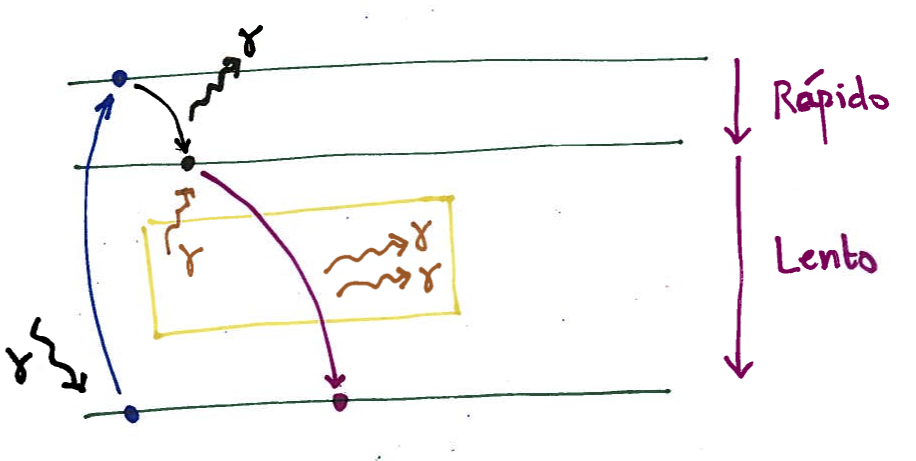 γ
Rápido
γ
γ
Lento
γ
γ